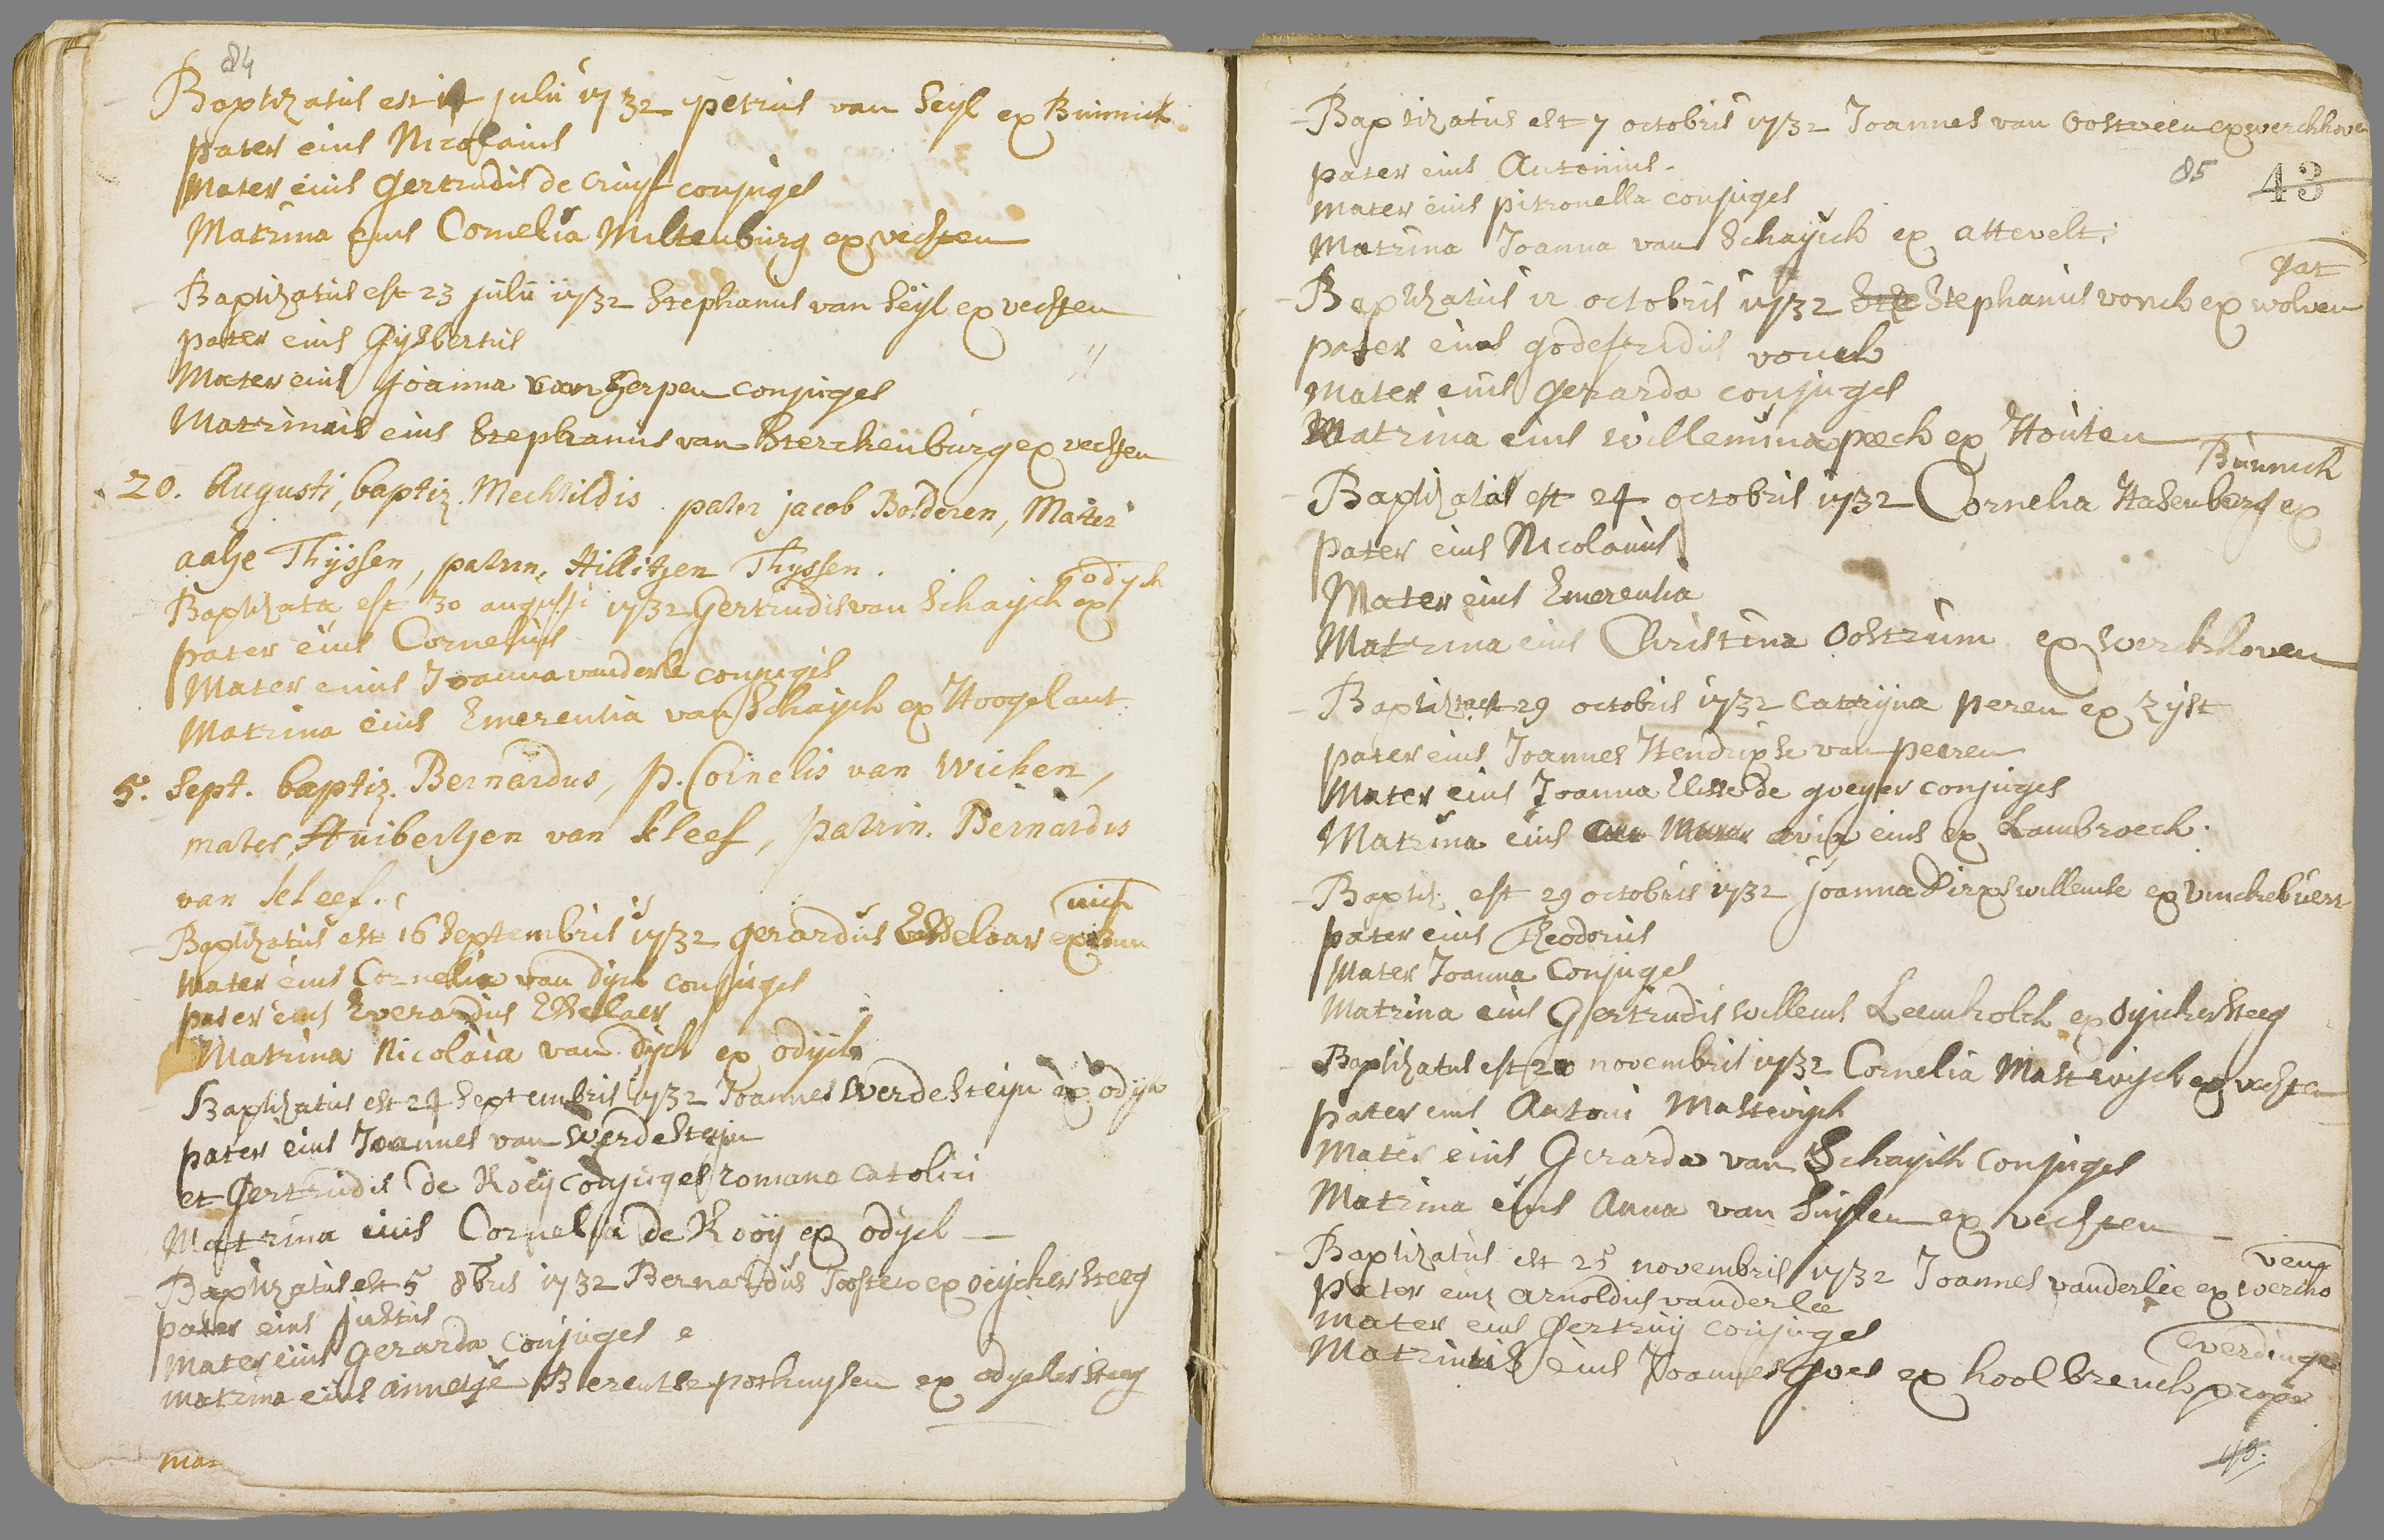 84
Baptizatus est julii 1732 petrus van Seyl ex Bunnick
pater eius Nicolaius
Mater eius Gertrudis de cruyf conjuges
Matrina eius Cornelia Miltenburg ex vechten
Baptizatus est 23 julii 1732 Stephanus van Seyl ex vechten
pater eius Gysbertus
Mater eius Joanna van Herpen conjuges
Matrinus eius Stephanus van Sterckenburg ex vechten
20. Augusti, baptiz. Mechtildis. pater jacob Bolderen, Mater
aaltje Thijssen, patrin, Hillitjen Thyssen.
odych
Baptizata est 30 augusti 1732 Gertrudis van Schaych ex
pater eius Cornelius
Mater eius Joanna vanderle conjuges
Matrina eius Emerentia van Schaych ex Hoogelant
5. Sept. baptiz. Bernardus, p. Cornelis van Wicken,
mater, Huibertjen van kleef, patrin. Bernardus
van kleef.
nich
Baptizatus est 16 Septembris 1732 gerardus Esselaar ex Bun
Mater eius Cornelia van dyck conjuges
pater eius Everardus Essellaer
Matrina Nicolaia van dyck ex odijck
Baptizatus est 24 Septembris 1732 Joannes Werdesteijn ex odijk
pater eius Joannes van Werdesteyn
et Gertrudis de Roëij conjuges romano catolici
Matrina eius Cornelia de Rooy ex odyck
Baptizatus est 5 8bris 1732 Bernardus Joosten ex oeijckersteeg
pater eius justus
Mater eius Gerarda conjuges e
matrina eius annetje Berentse pothuysen ex odyckersteeg
mat
Baptizatus est 7 octobris 1732 Joannes van Oostveen ex werckhoven
85 43
pater eius Antonius.
Mater eius pitronella conjuges
Matrina Joanna van Schayick ex attevelt.
gat
Baptizatus 12 octobris 1732 Ste Stephanus vonck ex wolven
pater eius godefridus vonck
Mater eius gerarda conjuges
Matrina eius Willemina peeck ex Houten
Bunnick
Baptizatus est 24 octobris 1732 Cornelia Hasenberg ex
pater eius Nicolaius
Mater eius Emerentia
Matrina eius Christina Oostrum ex Werckhoven
Baptizata est 29 octobris 1732 Catryna peren ex Zyst
pater eius Joannes Hendrixse van peeren
Mater eius Joanna Elisse de goeyer conjuges
Matrina eius avia eius ex Lambroeck.
Baptiz. est 29 octobris 1732 joanna Dirxs willemse ex vinckebuert
pater eius Theodorus
Mater Joanna Conjuges
Matrina eius Gertrudis willems Leemkolck ex odyckersteeg
Baptizatus est 20 novembris 1732 Cornelia Mastwyck ex vechten
pater eius Antoni Mastwyck
Mater eius Gerarda van Schayck conjuges
Matrina eius Anna van Suylen ex vechten
ven
Baptizatus est 25 novembris 1732 Joannes vanderlee ex wercho
pater eius arnoldus vanderlee
Mater eius Gertruij conjuges
everdinge
Matrinus eius Joannes goes ex hool breuck prope
43.